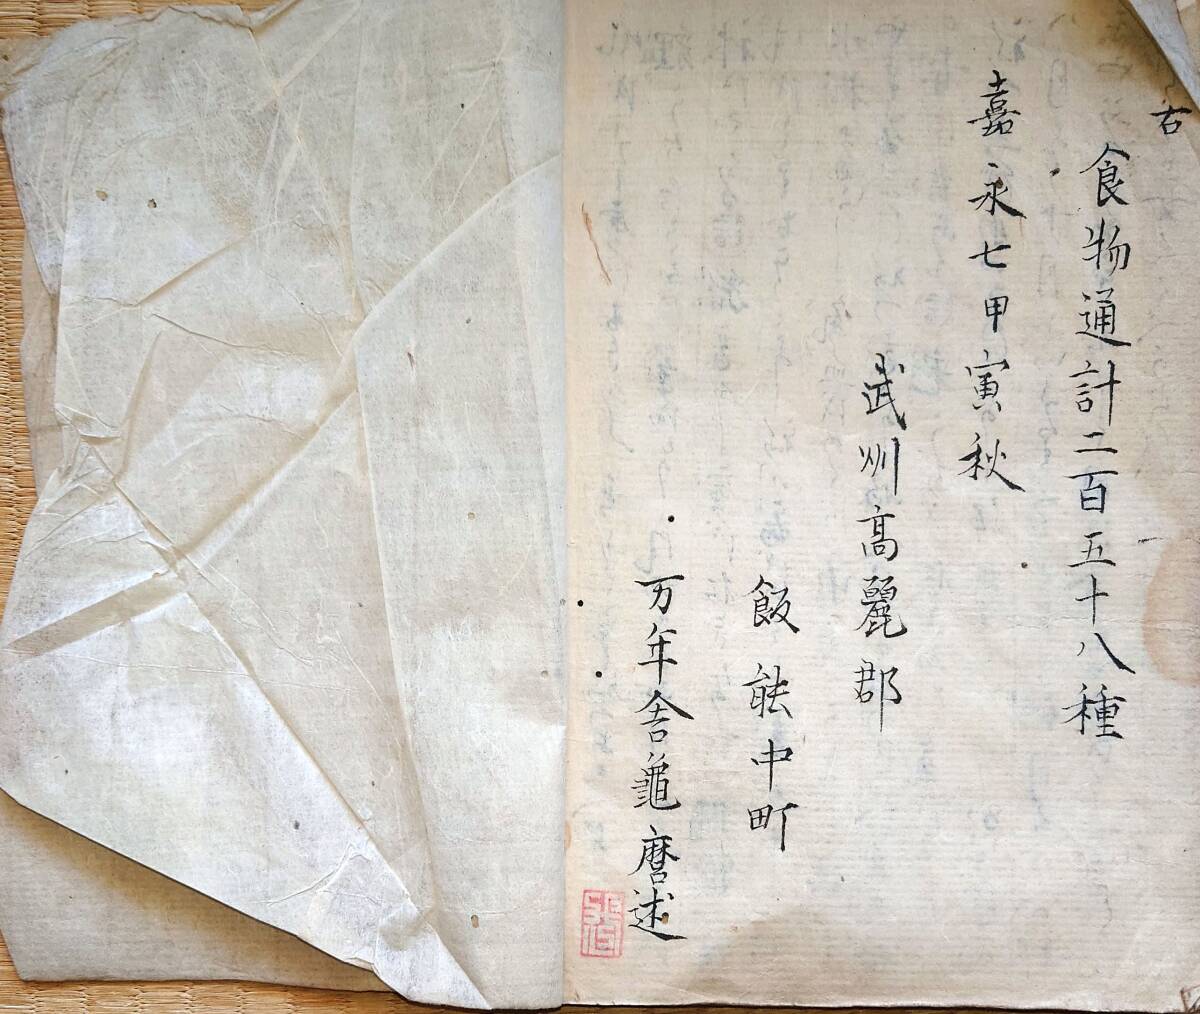 右
食物通計二百五十八種
嘉永七甲寅秋
武州高麗郡
飯能中町
万年舎亀麿述